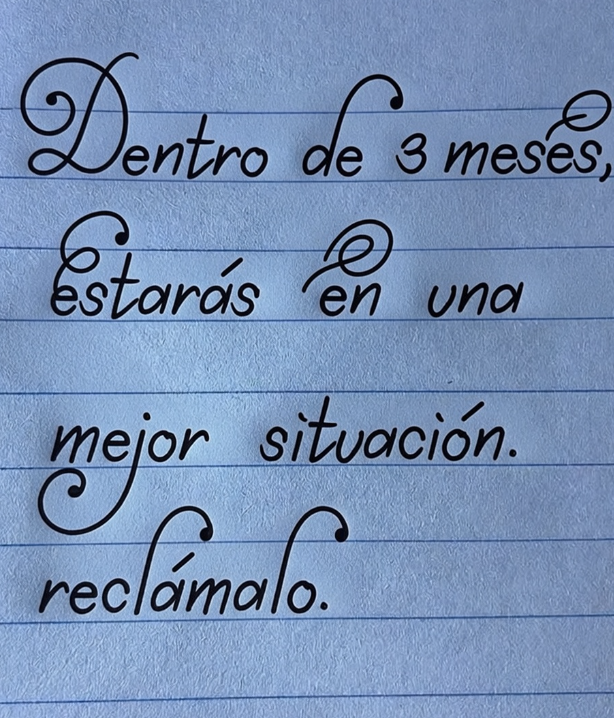 Dentro de 3 meses,
estarás en una
mejor situación.
reclámalo.